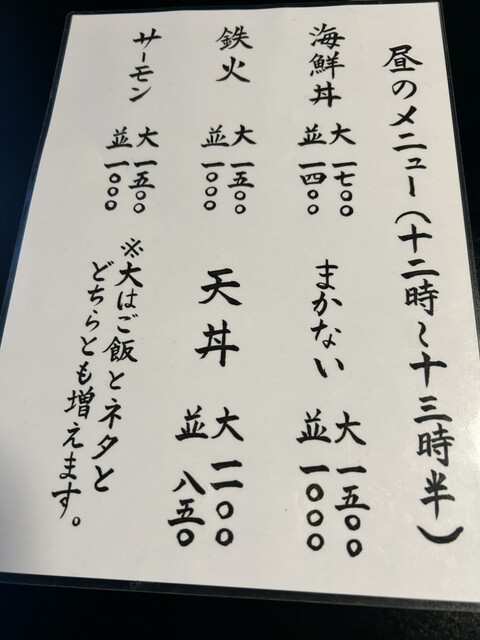 昼のメニュー(十二時〜十三時半)
海鮮丼
大 一七〇〇
並 一四〇〇
まかない
大 一五〇〇
並 一〇〇〇
鉄火
大 一五〇〇
並 一〇〇〇
天丼
大 一一〇〇
並 八五〇
サーモン
大 一五〇〇
並 一〇〇〇
※大はご飯とネタと
どちらとも増えます。